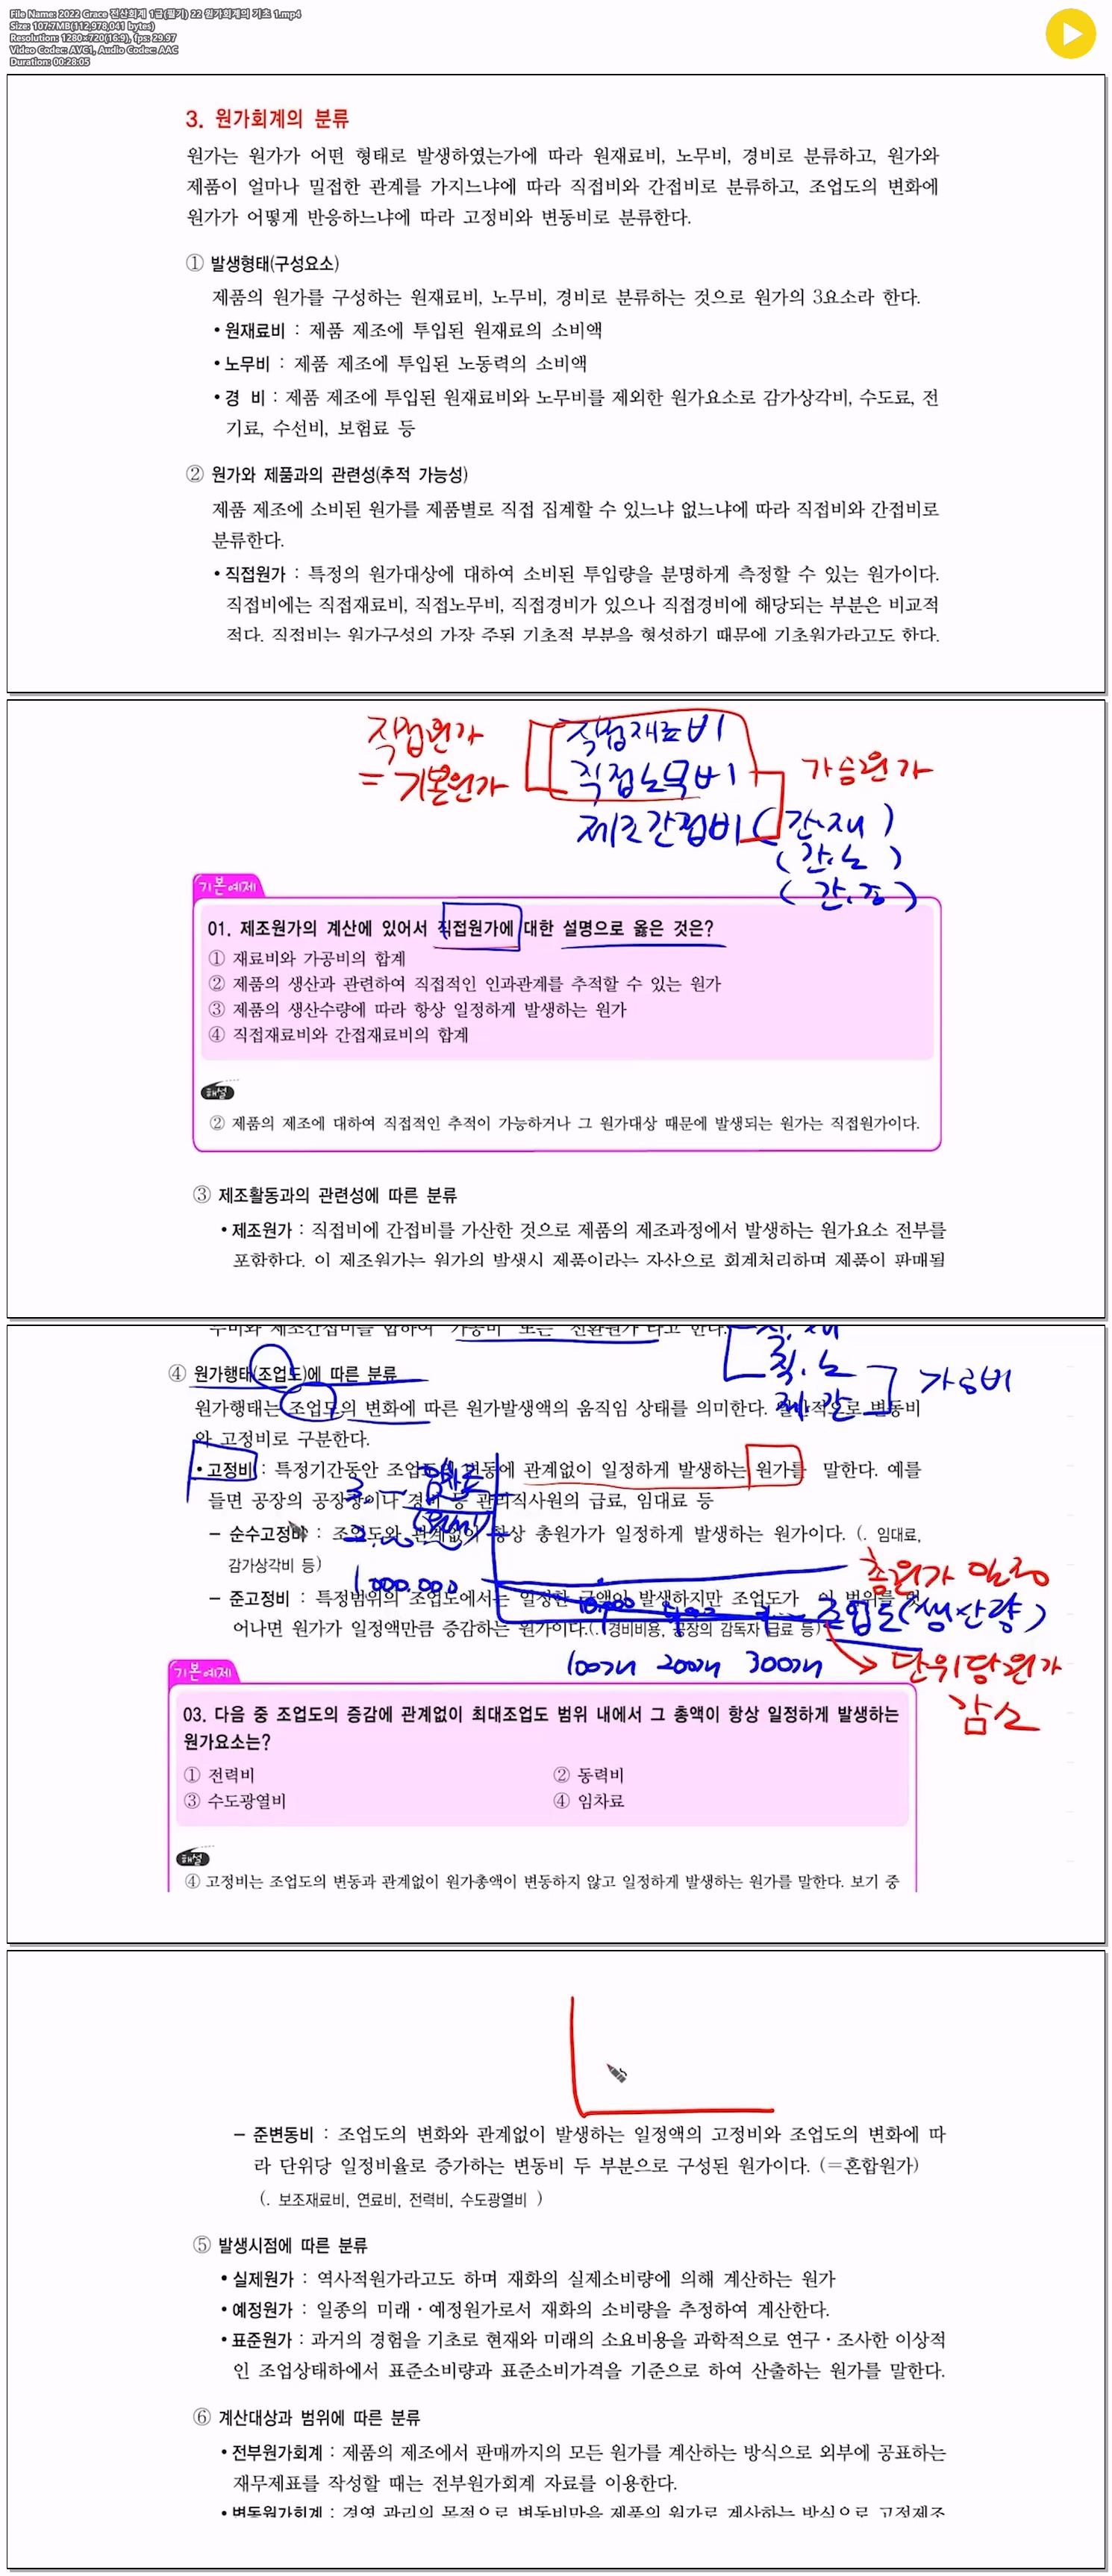 File Name: 2022 Grace 전산회계 1급(필기) 22 원가회계의 기초 1.mp4
Size: 107.7MB(112,978,041 bytes)
Resolution: 1280×720(16:9), fps: 29.97
Video Codec: AVC1, Audio Codec: AAC
Duration: 00:28:05
3. 원가회계의 분류
원가는 원가가 어떤 형태로 발생하였는가에 따라 원재료비, 노무비, 경비로 분류하고, 원가와
제품이 얼마나 밀접한 관계를 가지느냐에 따라 직접비와 간접비로 분류하고, 조업도의 변화에
원가가 어떻게 반응하느냐에 따라 고정비와 변동비로 분류한다.
① 발생형태(구성요소)
제품의 원가를 구성하는 원재료비, 노무비, 경비로 분류하는 것으로 원가의 3요소라 한다.
• 원재료비 : 제품 제조에 투입된 원재료의 소비액
• 노무비 : 제품 제조에 투입된 노동력의 소비액
• 경 비 : 제품 제조에 투입된 원재료비와 노무비를 제외한 원가요소로 감가상각비, 수도료, 전
기료, 수선비, 보험료 등
② 원가와 제품과의 관련성(추적 가능성)
제품 제조에 소비된 원가를 제품별로 직접 집계할 수 있느냐 없느냐에 따라 직접비와 간접비로
분류한다.
• 직접원가 : 특정의 원가대상에 대하여 소비된 투입량을 분명하게 측정할 수 있는 원가이다.
직접비에는 직접재료비, 직접노무비, 직접경비가 있으나 직접경비에 해당되는 부분은 비교적
적다. 직접비는 원가구성의 가장 주된 기초적 부분을 형성하기 때문에 기초원가라고도 한다.
직접원가 직접재료비
= 기본원가 직접노무비 가공원가
제조간접비 (간.재)
(간.노)
(간.경)
기본예제
01. 제조원가의 계산에 있어서 직접원가에 대한 설명으로 옳은 것은?
① 재료비와 가공비의 합계
② 제품의 생산과 관련하여 직접적인 인과관계를 추적할 수 있는 원가
③ 제품의 생산수량에 따라 항상 일정하게 발생하는 원가
④ 직접재료비와 간접재료비의 합계
해설
② 제품의 제조에 대하여 직접적인 추적이 가능하거나 그 원가대상 때문에 발생되는 원가는 직접원가이다.
③ 제조활동과의 관련성에 따른 분류
• 제조원가 : 직접비에 간접비를 가산한 것으로 제품의 제조과정에서 발생하는 원가요소 전부를
포함한다. 이 제조원가는 원가의 발생시 제품이라는 자산으로 회계처리하며 제품이 판매될
무비와 제조간접비를 합하여 가공비 또는 전환원가 라고 한다. 직.재
④ 원가행태(조업도)에 따른 분류 직.노 가공비
원가행태는 조업도의 변화에 따른 원가발생액의 움직임 상태를 의미한다. 변동비 제.간
와 고정비로 구분한다.
• 고정비 : 특정기간동안 조업도의 변동에 관계없이 일정하게 발생하는 원가를 말한다. 예를
들면 공장의 공장장이나 경비 등 관리직사원의 급료, 임대료 등
– 순수고정비 : 조업도와 관계없이 항상 총원가가 일정하게 발생하는 원가이다. (. 임대료,
감가상각비 등)
1,000,000 총원가 일정
– 준고정비 : 특정범위의 조업도에서는 일정한 금액이 발생하지만 조업도가 이 범위를 벗
10,000 조업도(생산량)
어나면 원가가 일정액만큼 증감하는 원가이다.(. 경비비용, 공장의 감독자 급료 등)
100개 200개 300개 단위당원가
감소
기본예제
03. 다음 중 조업도의 증감에 관계없이 최대조업도 범위 내에서 그 총액이 항상 일정하게 발생하는
원가요소는?
① 전력비 ② 동력비
③ 수도광열비 ④ 임차료
해설
④ 고정비는 조업도의 변동과 관계없이 원가총액이 변동하지 않고 일정하게 발생하는 원가를 말한다. 보기 중
– 준변동비 : 조업도의 변화와 관계없이 발생하는 일정액의 고정비와 조업도의 변화에 따
라 단위당 일정비율로 증가하는 변동비 두 부분으로 구성된 원가이다. (=혼합원가)
(. 보조재료비, 연료비, 전력비, 수도광열비 )
⑤ 발생시점에 따른 분류
• 실제원가 : 역사적원가라고도 하며 재화의 실제소비량에 의해 계산하는 원가
• 예정원가 : 일종의 미래·예정원가로서 재화의 소비량을 추정하여 계산한다.
• 표준원가 : 과거의 경험을 기초로 현재와 미래의 소요비용을 과학적으로 연구·조사한 이상적
인 조업상태하에서 표준소비량과 표준소비가격을 기준으로 하여 산출하는 원가를 말한다.
⑥ 계산대상과 범위에 따른 분류
• 전부원가회계 : 제품의 제조에서 판매까지의 모든 원가를 계산하는 방식으로 외부에 공표하는
재무제표를 작성할 때는 전부원가회계 자료를 이용한다.
• 변동원가회계 : 경영 관리의 목적으로 변동비만을 제품의 원가로 계산하는 방식으로 고정제조